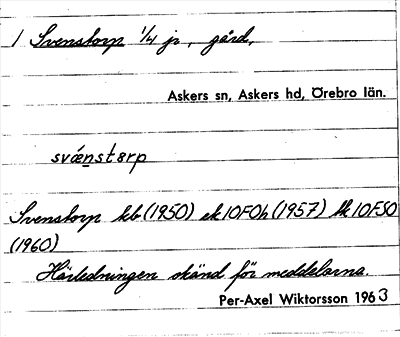 1 Svenstorp 1/4 jr, gård,
Askers sn, Askers hd, Örebro län.
svǽnstȣrp
Svenstorp kb (1950) ek 10F0h (1957) tk 10FSO
(1960)
Härledningen okänd för meddelarna.
Per-Axel Wiktorsson 1963